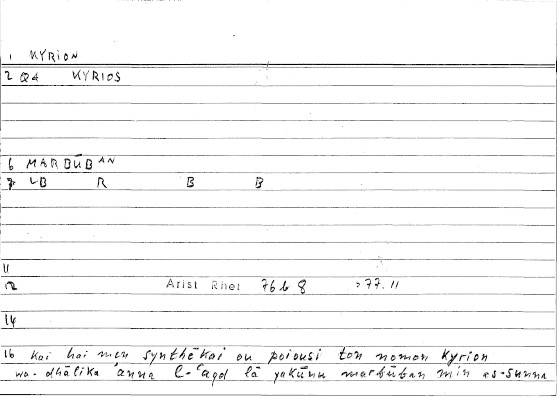 1 KYRION
2 Q4 KYRIOS
6 MARBŪBAN
LB R B B
11
12 Arist Rhet 76b8 77.11
14
16 kai hai men synthēkai ou poiousi ton nomon kyrion
wa-dhālika 'anna l-ʿaqd lā yakūnu marbūban min as-sunna